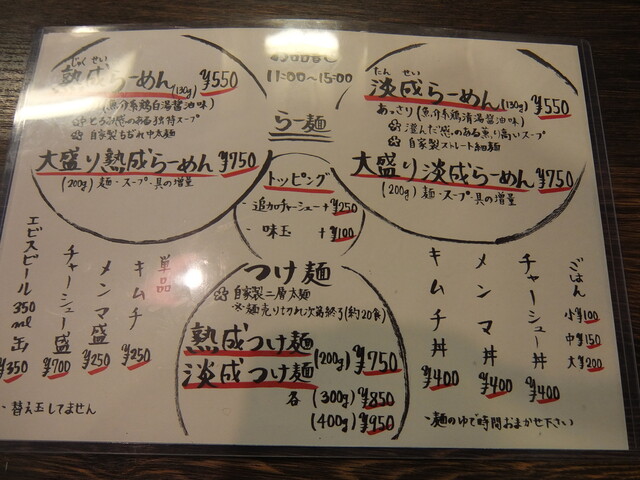 じゅくせい
熟成らーめん(130g) ¥550
(魚介系鶏白湯醤油味)
とろみ感のある独特スープ
自家製もちもち中太麺
大盛り熟成らーめん ¥750
(200g)麺・スープ・具の増量
11:00〜15:00
らー麺
トッピング
・追加チャーシュー+¥250
・味玉 +¥100
たんせい
淡成らーめん(130g) ¥550
あっさり(魚介系鶏清湯醤油味)
澄んだ感のある薫り高いスープ
自家製ストレート細麺
大盛り淡成らーめん ¥750
(200g)麺・スープ・具の増量
つけ麺
自家製二層太麺
※麺売り切れ次第終了(約20食)
熟成つけ麺
淡成つけ麺
(200g) ¥750
各 (300g) ¥850
(400g) ¥950
単品
キムチ ¥250
メンマ盛 ¥250
チャーシュー盛 ¥700
エビスビール350ml缶 ¥350
・替え玉してません
ごはん
小¥100
中¥150
大¥200
チャーシュー丼 ¥400
メンマ丼 ¥400
キムチ丼 ¥400
・麺のゆで時間おまかせ下さい